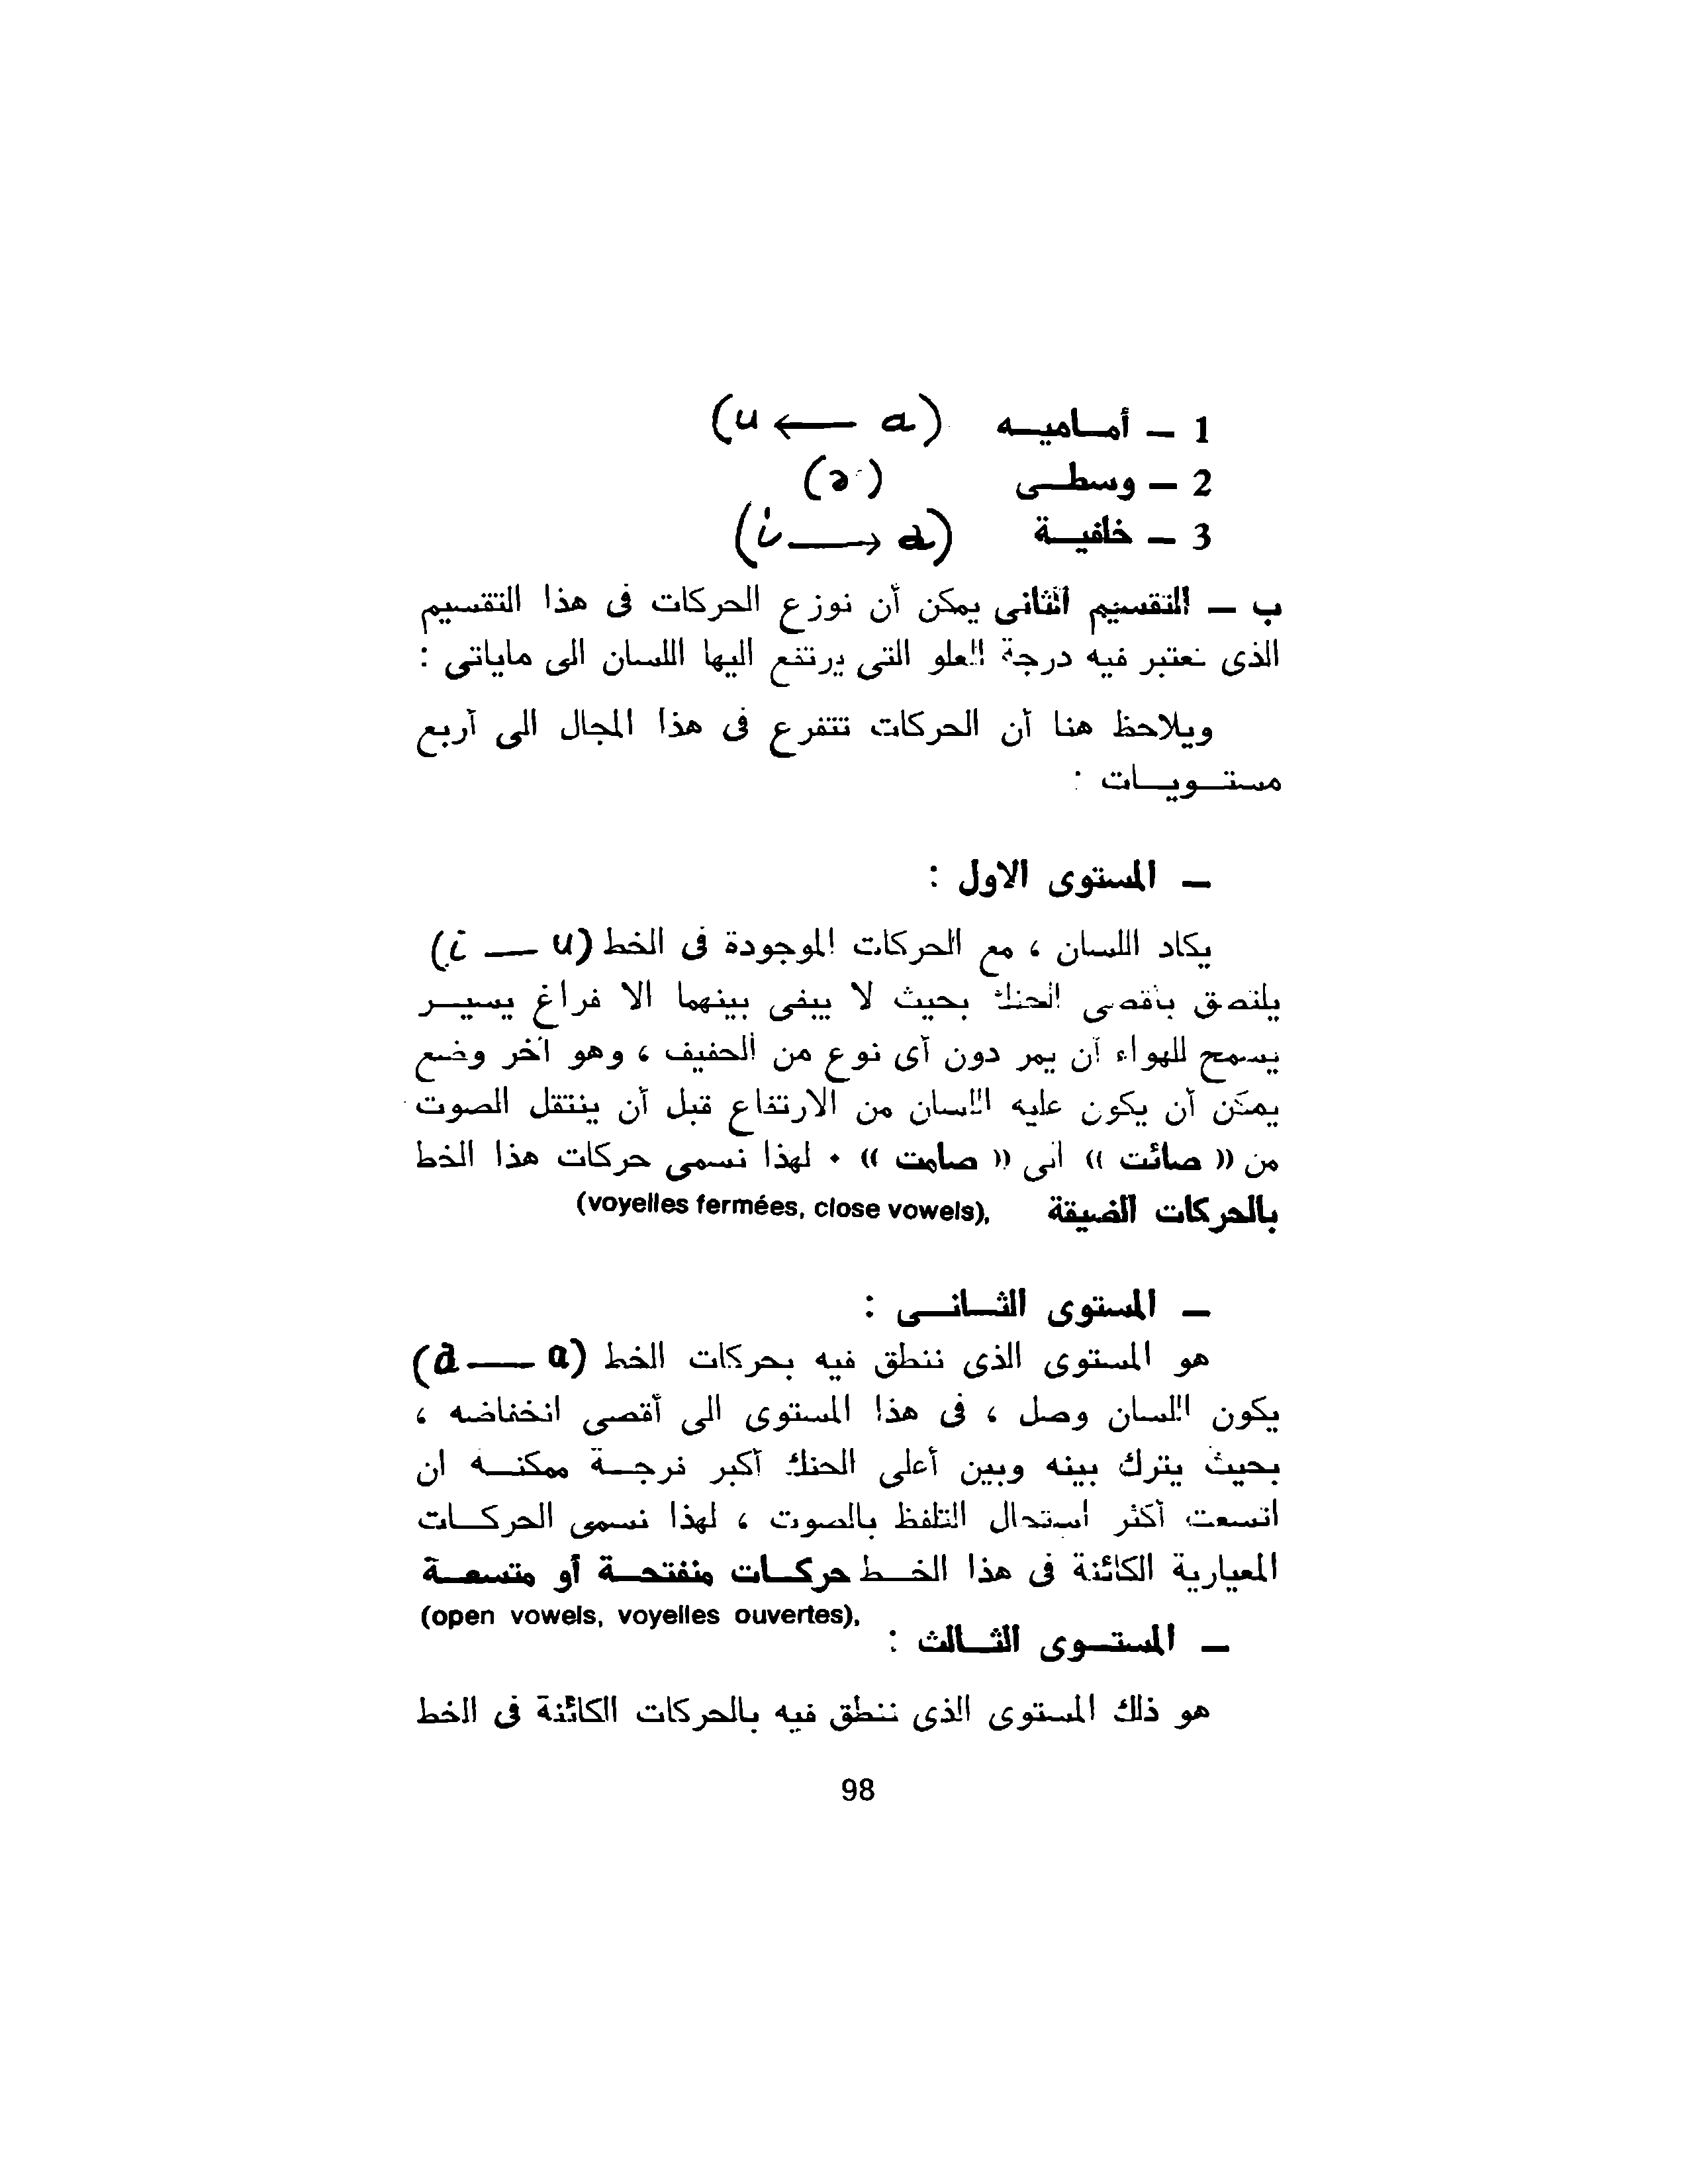 1 – أماميه (u ← a)
2 – وسطى (ə)
3 – خلفية (i → a)
ب – التقسيم الثانى يمكن أن نوزع الحركات فى هذا التقسيم
الذى نعتبر فيه درجة العلو التى يرتفع اليها اللسان الى ماياتى :
ويلاحظ هنا أن الحركات تتفرع فى هذا المجال الى أربع
مستويات :
– المستوى الاول :
يكاد اللسان ، مع الحركات الموجودة فى الخط (i — u)
يلتصق بأقصى الحنك بحيث لا يبقى بينهما الا فراغ يسير
يسمح للهواء أن يمر دون أى نوع من الحفيف ، وهو آخر وضع
يمكن أن يكون عليه اللسان من الارتفاع قبل أن ينتقل الصوت
من « صائت » الى « صامت » • لهذا نسمى حركات هذا الخط
بالحركات الضيقة (voyelles fermées, close vowels),
– المستوى الثانى :
هو المستوى الذى ننطق فيه بحركات الخط (a — ɑ)
يكون اللسان وصل ، فى هذا المستوى الى أقصى انخفاضه ،
بحيث يترك بينه وبين أعلى الحنك أكبر فرجة ممكنه ان
اتسعت أكثر استحال التلفظ بالصوت ، لهذا نسمى الحركات
المعيارية الكائنة فى هذا الخط حركات منفتحة أو متسعة
(open vowels, voyelles ouvertes),
– المستوى الثالث :
هو ذلك المستوى الذى ننطق فيه بالحركات الكائنة فى الخط
98